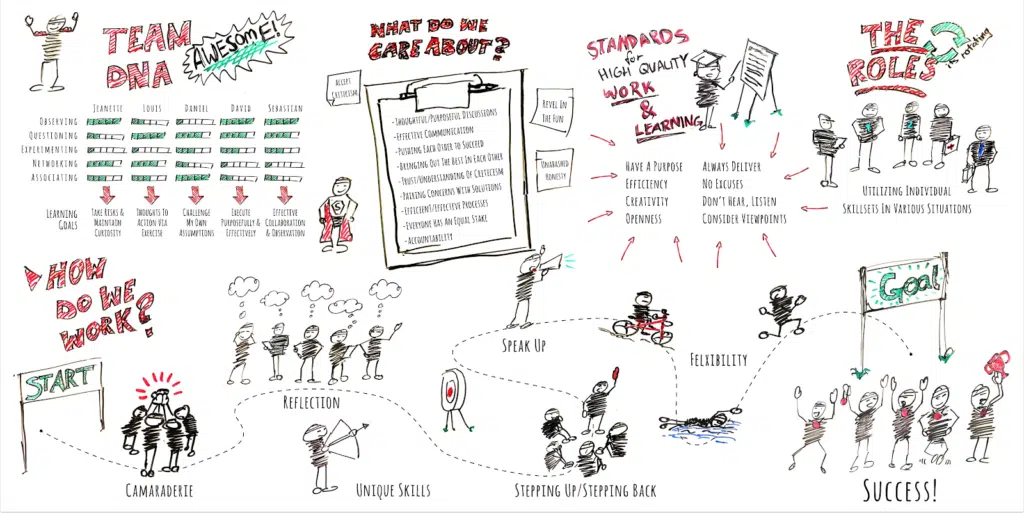 TEAM
DNA
AWESOME!
JEANETTE LOUIS DANIEL DAVID SEBASTIAN
OBSERVING
QUESTIONING
EXPERIMENTING
NETWORKING
ASSOCIATING
LEARNING
GOALS
TAKE RISKS &
MAINTAIN
CURIOSITY
THOUGHTS TO
ACTION VIA
EXERCISE
CHALLENGE
MY OWN
ASSUMPTIONS
EXECUTE
PURPOSEFULLY &
EFFECTIVELY
EFFECTIVE
COLLABORATION
& OBSERVATION
WHAT DO WE
CARE ABOUT?
ACCEPT
CRETECISM
-THOUGHTFUL/PURPOSEFUL DISCUSSIONS
-EFFECTIVE COMMUNICATION
-PUSHING EACH OTHER TO SUCCEED
-BRINGING OUT THE BEST IN EACH OTHER
-TRUST/UNDERSTANDING OF CRETECISM
-PAIRING CONCERNS WITH SOLUTIONS
-EFFICIENT/EFFECTIVE PROCESSES
-EVERYONE HAS AN EQUAL STAKE
-ACCOUNTABILITY
REVEL IN
THE FUN
UNABASHED
HONESTY
S
STANDARDS
for
HIGH QUALITY
WORK
&
LEARNING
HAVE A PURPOSE
EFFICIENCY
CREATIVITY
OPENNESS
ALWAYS DELIVER
NO EXCUSES
DON'T HEAR, LISTEN
CONSIDER VIEWPOINTS
THE
ROLES
UTILIZING INDIVIDUAL
SKILLSETS IN VARIOUS SITUATIONS
HOW
DO WE
WORK?
START
CAMARADERIE
REFLECTION
UNIQUE SKILLS
SPEAK UP
STEPPING UP/STEPPING BACK
FELXIBILITY
Goal
SUCCESS!